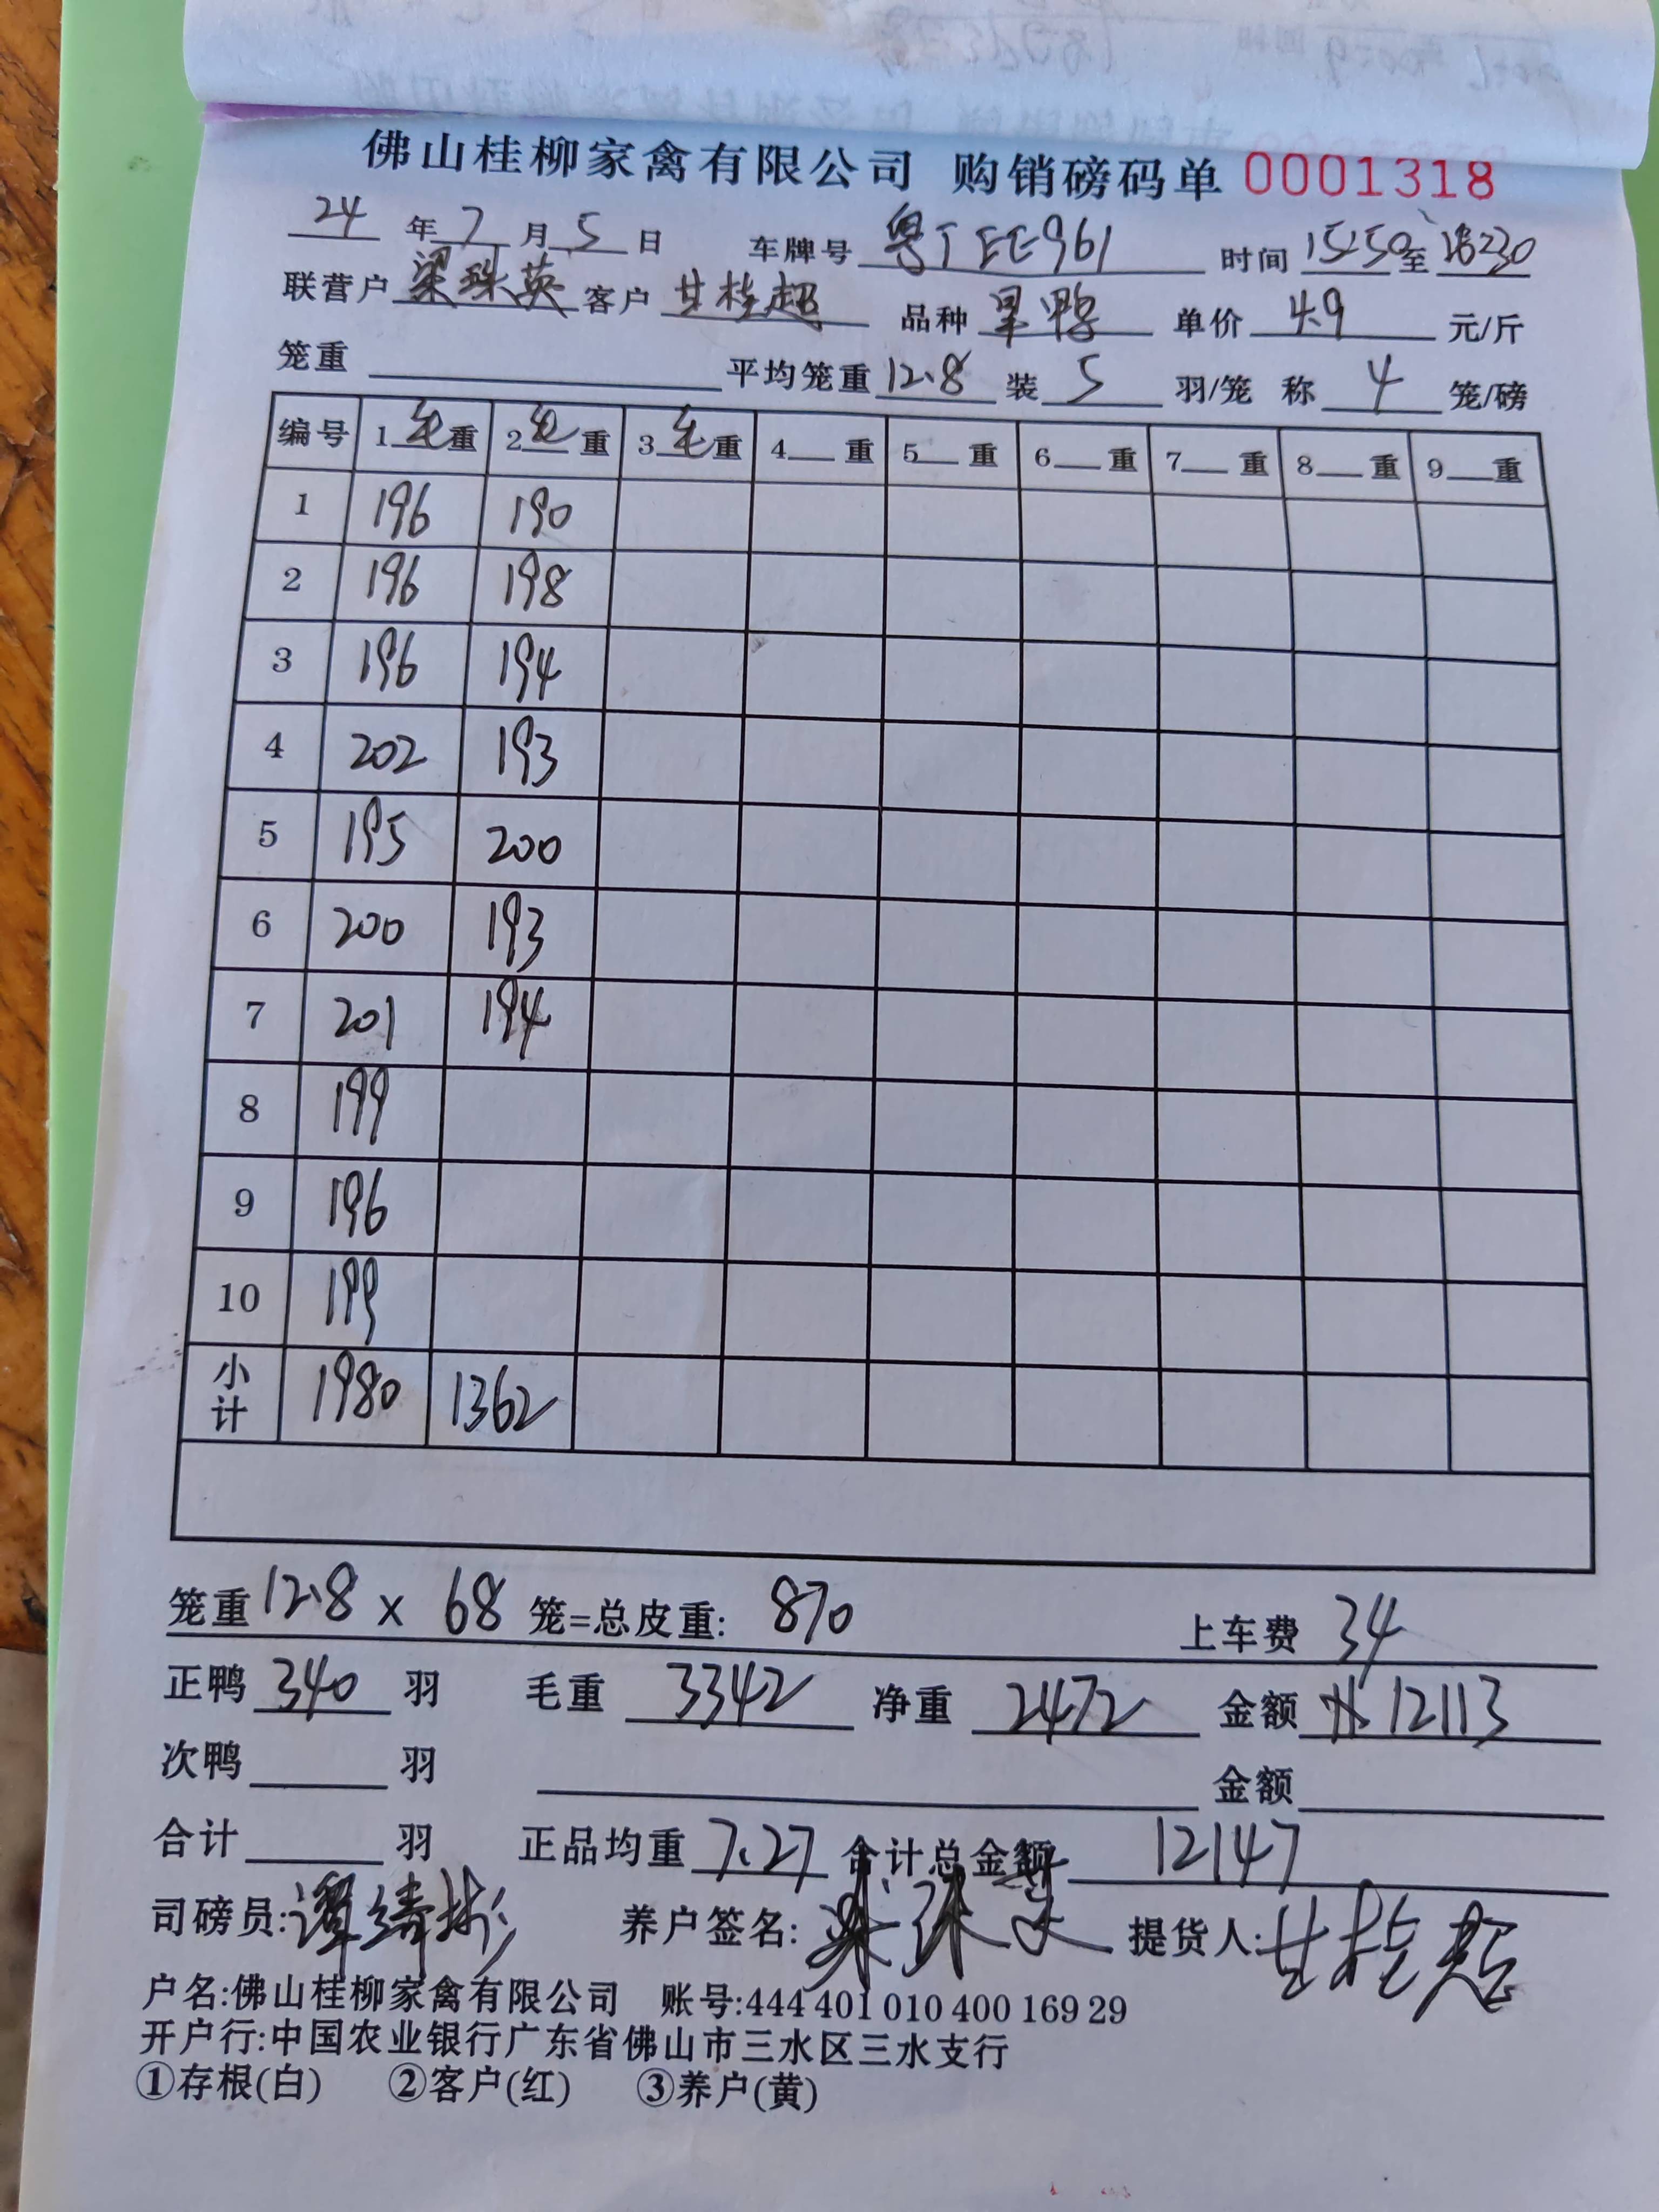 佛山桂柳家禽有限公司 购销磅码单 0001318
24 年 7 月 5 日 车牌号 粤TEE961 时间 15:50 至 18:30
联营户 梁珠英 客户 甘桂超 品种 旱鸭 单价 4.9 元/斤
笼重 平均笼重 12.8 装 5 羽/笼 称 4 笼/磅
编号 1 毛 重 2 毛 重 3 毛 重 4 重 5 重 6 重 7 重 8 重 9 重
1 196 190
2 196 198
3 196 194
4 202 193
5 195 200
6 200 193
7 201 194
8 199
9 196
10 199
小计 1980 1362
笼重 12.8 x 68 笼=总皮重: 870 上车费 34
正鸭 340 羽 毛重 3342 净重 2472 金额 12113
次鸭 羽 金额
合计 羽 正品均重 7.27 合计总金额 12147
司磅员: 养户签名: 梁珠英 提货人: 甘桂超
户名:佛山桂柳家禽有限公司 账号:444 401 010 400 169 29
开户行:中国农业银行广东省佛山市三水区三水支行
①存根(白) ②客户(红) ③养户(黄)